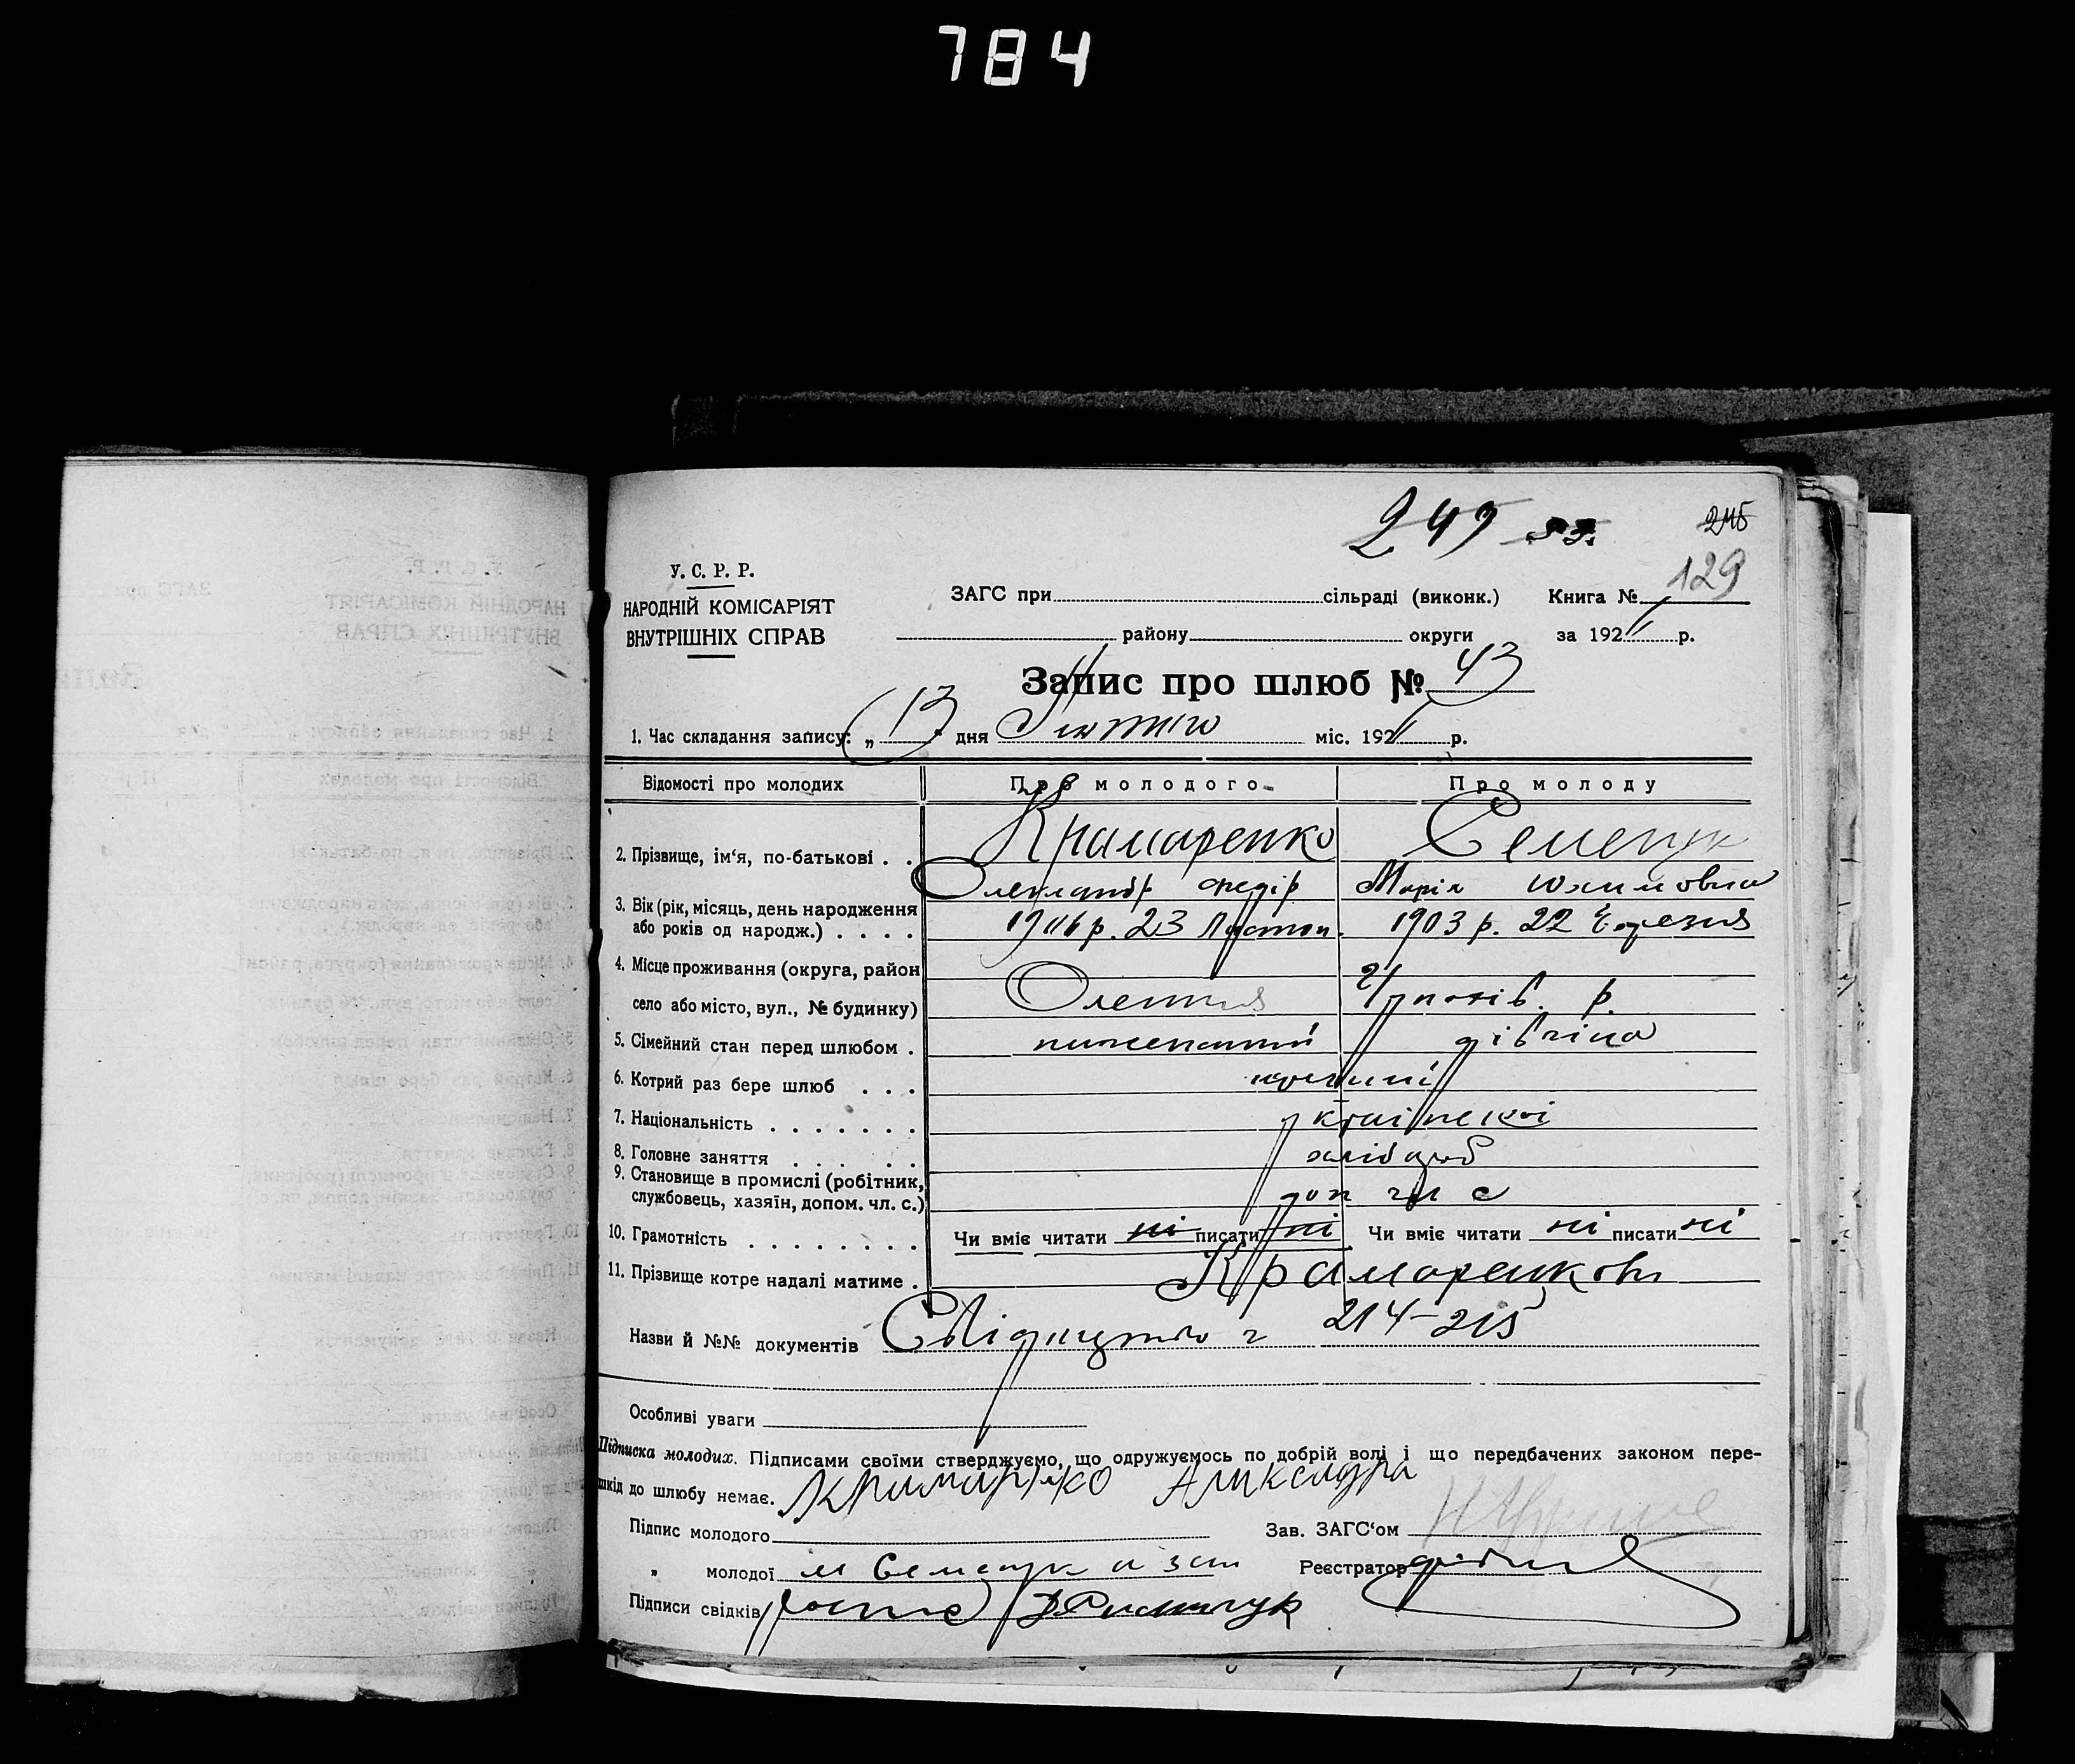 784
249 53. 245
129
У. С. Р. Р.
НАРОДНІЙ КОМІСАРІЯТ
ВНУТРІШНІХ СПРАВ
ЗАГС при сільраді (виконк.) Книга №
району округи за 192 р.
Запис про шлюб № 43
1. Час складання запису: „ 13 " дня Лютого міс. 192 р.
Відомості про молодих Про молодого Про молоду
2. Прізвище, ім‘я, по-батькові . . Крамаренко Семенук
Олександр Федір Марія Юхимовна
3. Вік (рік, місяць, день народження
або років од народж.) . . . . 1906 р. 23 Листоп. 1903 р. 22 Березня
4. Місце проживання (округа, район
село або місто, вул., № будинку)
5. Сімейний стан перед шлюбом . ниженатий дівчина
6. Котрий раз бере шлюб . . .
7. Національність . . . . . . . українскої
8. Головне заняття . . . . . хлібороб
9. Становище в промислі (робітник,
службовець, хазяїн, допом. чл. с.) доп чл с
10. Грамотність . . . . . . . . Чи вміє читати ні писати ні Чи вміє читати ні писати ні
11. Прізвище котре надалі матиме . Крамаренкови
Назви й №№ документів 214-215
Особливі уваги
Підписка молодих. Підписами своїми стверджуємо, що одружуємось по добрій волі і що передбачених законом пере-
шкід до шлюбу немає.
Підпис молодого Зав. ЗАГС‘ом
„ молодої Реєстратор
Підписи свідків